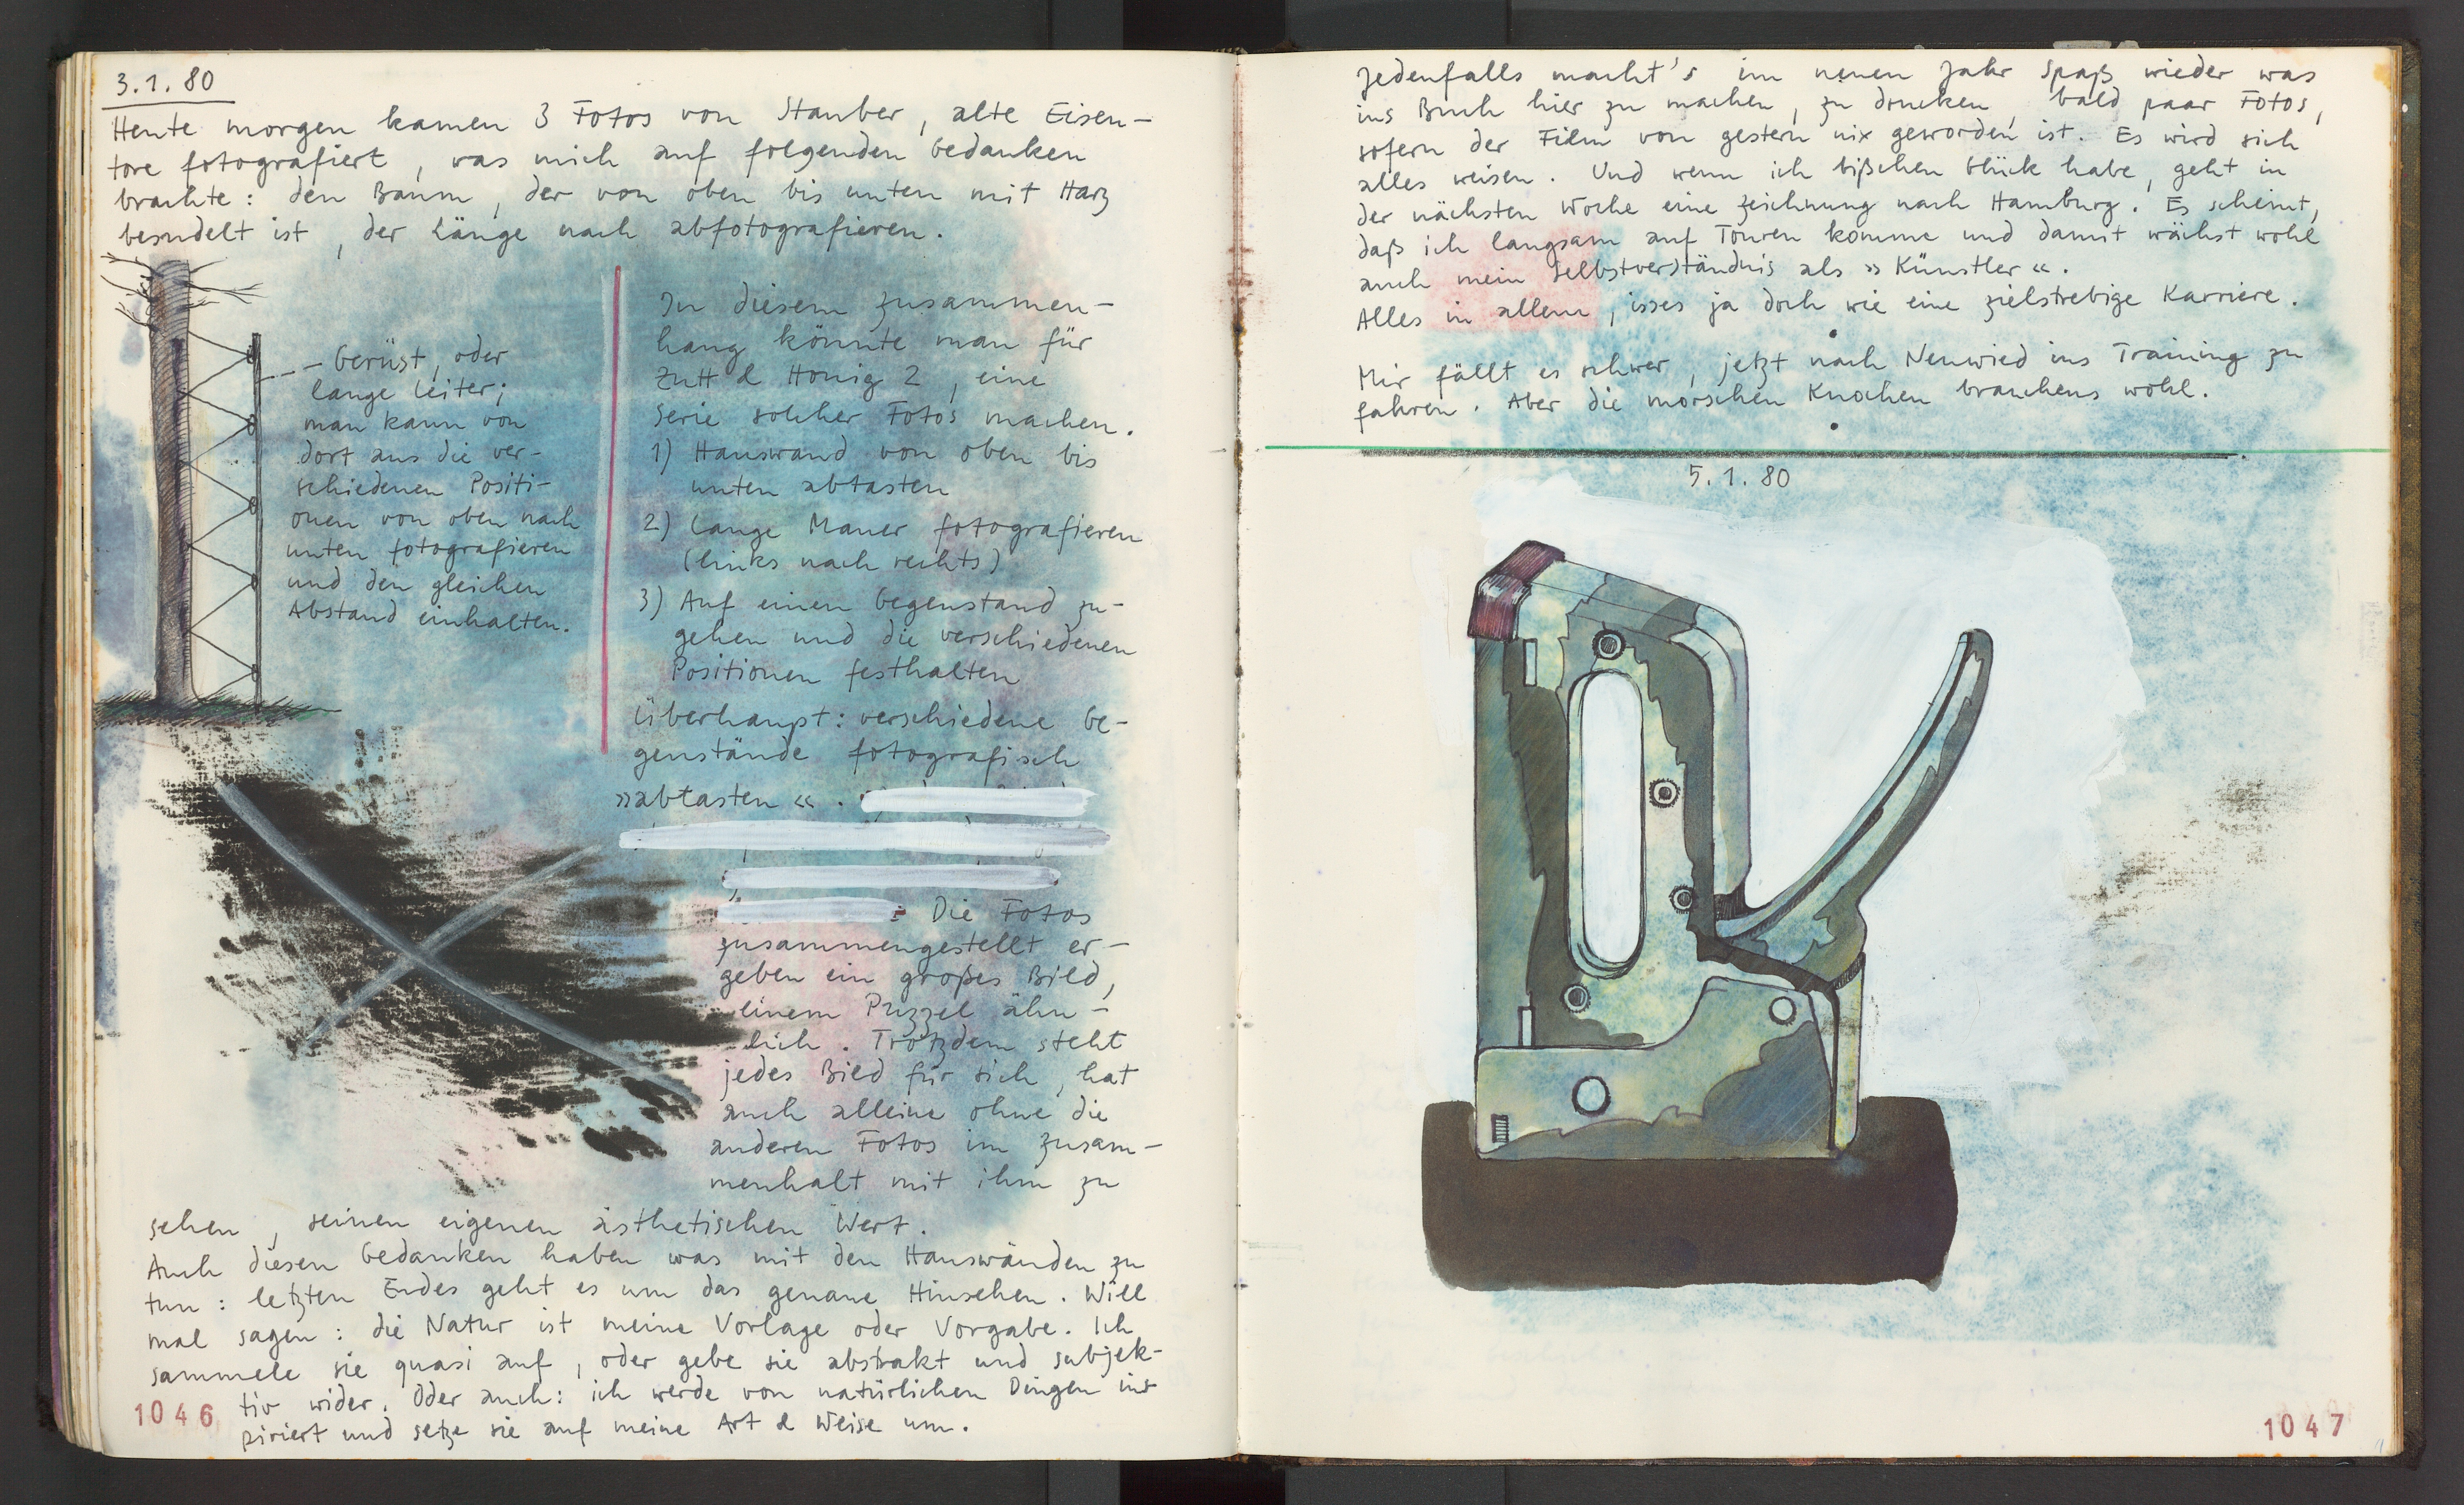 3.1.80
Heute morgen kamen 3 Fotos von Stauber, alte Eisen-
tore fotografiert, was mich auf folgenden Gedanken
brachte: den Baum, der von oben bis unten mit Harz
besudelt ist, der Länge nach abfotografieren.
Gerüst, oder
lange Leiter;
man kann von
dort aus die ver-
schiedenen Positi-
onen von oben nach
unten fotografieren
und den gleichen
Abstand einhalten.
In diesem Zusammen-
hang könnte man für
Zutt & Honig 2, eine
Serie solcher Fotos machen.
1) Hauswand von oben bis
unten abtasten
2) Lange Mauer fotografieren
(links nach rechts)
3) Auf einen Gegenstand zu-
gehen und die verschiedenen
Positionen festhalten
Überhaupt: verschiedene Ge-
genstände fotografisch
»abtasten«.
Die Fotos
zusammengestellt er-
geben ein großes Bild,
einem Puzzel ähn-
lich. Trotzdem steht
jedes Bild für sich, hat
auch alleine ohne die
anderen Fotos im Zusam-
menhalt mit ihm zu
sehen, seinen eigenen ästhetischen Wert.
Auch diesen Gedanken haben was mit den Hauswänden zu
tun: letzten Endes geht es um das genaue Hinsehen. Will
mal sagen: die Natur ist meine Vorlage oder Vorgabe. Ich
sammele sie quasi auf, oder gebe sie abstrakt und subjek-
tiv wider. Oder auch: ich werde von natürlichen Dingen ins
piriert und setze sie auf meine Art & Weise um.
1046
Jedenfalls macht's im neuen Jahr Spaß wieder was
ins Buch hier zu machen, zu drucken, bald paar Fotos,
sofern der Film von gestern nix geworden ist. Es wird sich
alles weisen. Und wenn ich bißchen Glück habe, geht in
der nächsten Woche eine Zeichnung nach Hamburg. Es scheint,
daß ich langsam auf Touren komme und damit wächst wohl
auch mein Selbstverständnis als »Künstler«.
Alles in allem, isses ja doch wie eine zielstrebige Karriere.
Mir fällt es schwer, jetzt nach Neuwied ins Training zu
fahren. Aber die morschen Knochen brauchens wohl.
5.1.80
1047